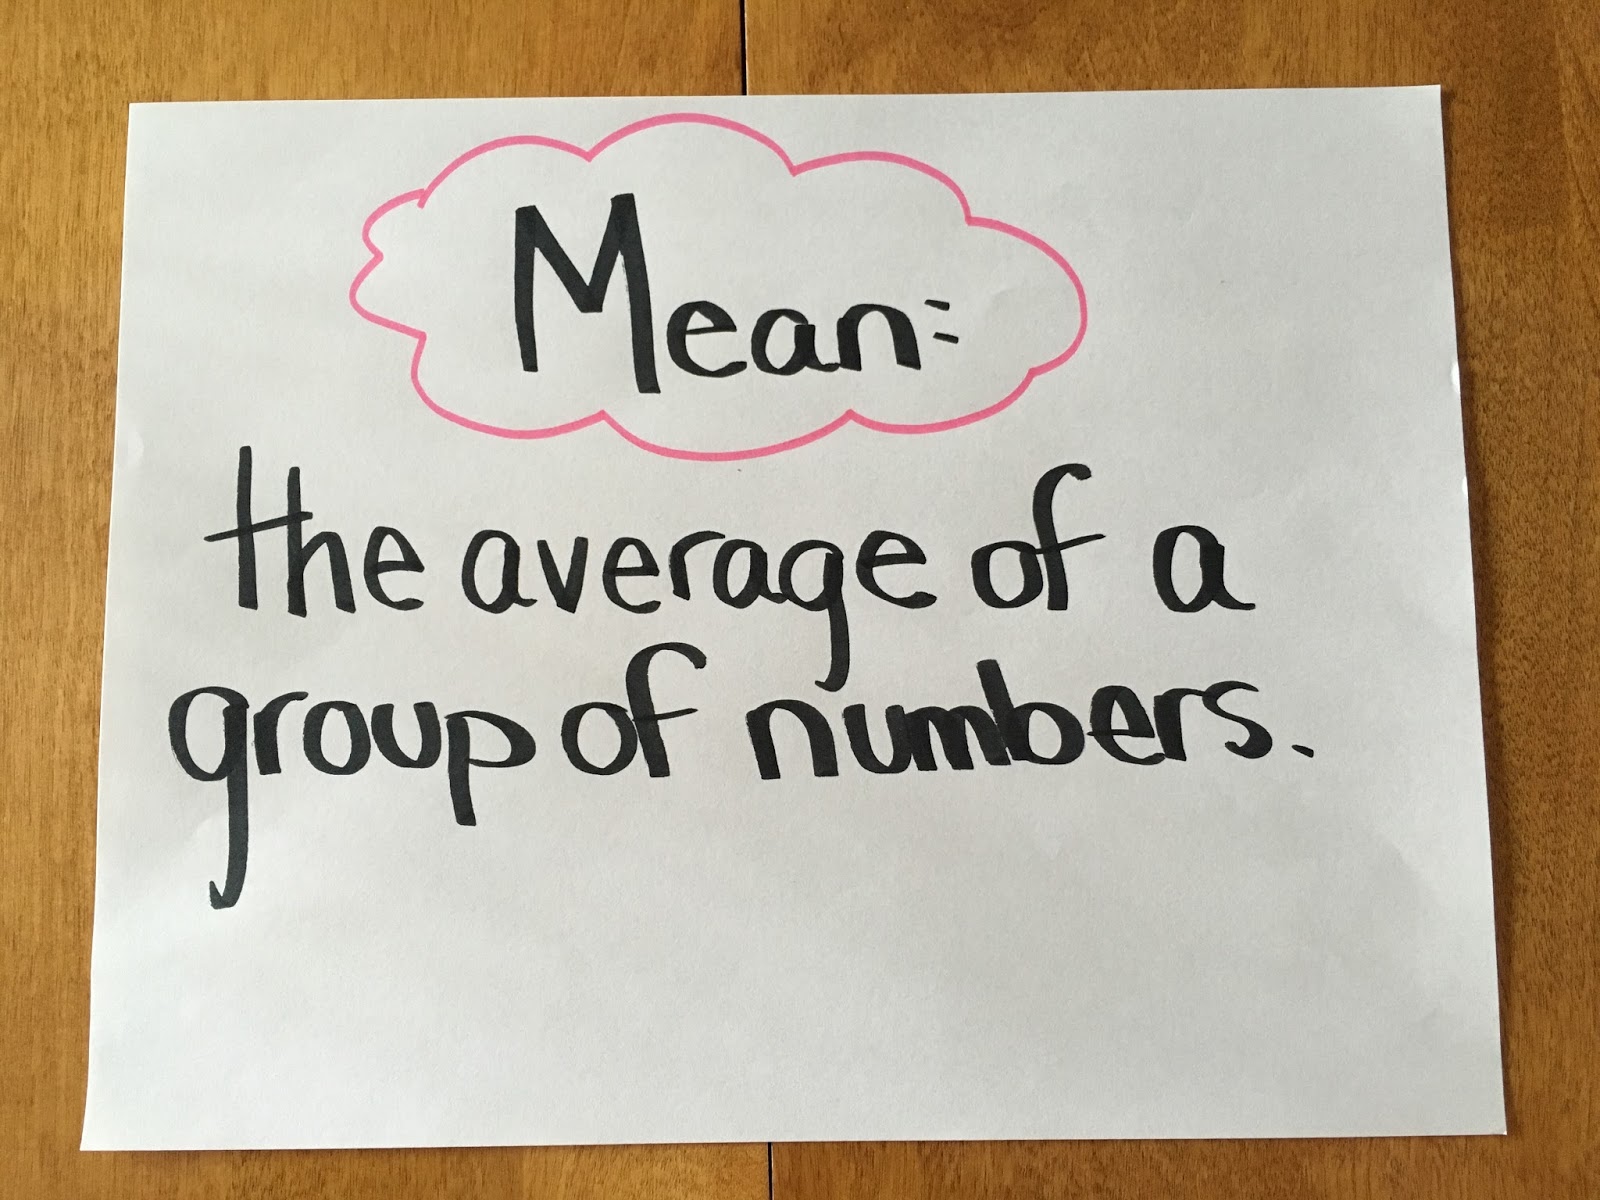 Mean:
the average of a
group of numbers.